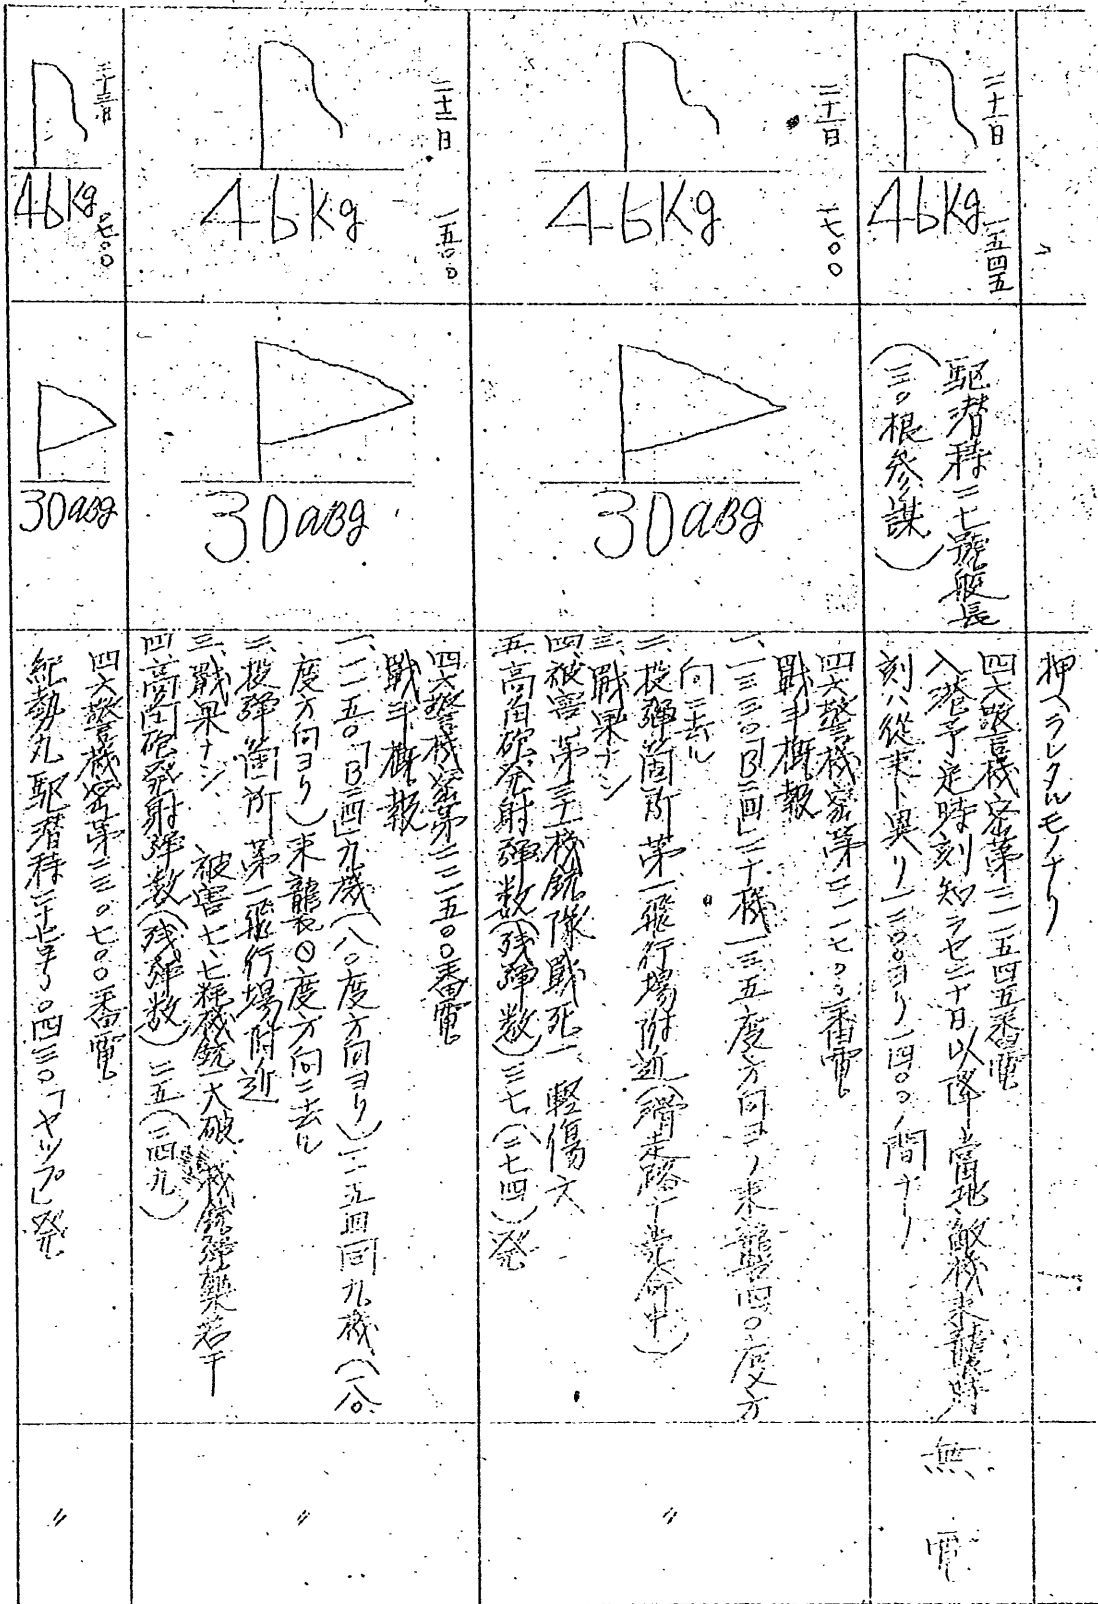 押ヘラレタルモノナリ
二十一日
一五四五
46Kg
駆潜特二七號艇長
(三〇根参謀)
四六警機密第二一一五四五番電
入港予定時刻知ラセ二十日以降当地敵機来襲時
刻ハ従来ト異リ一三〇〇ヨリ一四〇〇ノ間ナリ
無電
二十一日
一七〇〇
46Kg
30aBg
四六警機密第二一一七〇〇番電
戰斗概報
一、一三三〇「B二四」二十機一三五度方向ヨリ来襲四〇度方
向ニ去ル
二、投彈箇所 第一飛行場附近(滑走路 命中)
三、戰果ナシ
四、被害 第三十一機銃隊戰死一、軽傷六
五、高角砲発射彈数(残彈数)三七(二七四)発
〃
二十二日
一五〇〇
46Kg
30aBg
四六警機密第二二一五〇〇番電
戰斗概報
一、一一五〇「B二四」九機(八〇度方向ヨリ)一二五四同九機(一八〇
度方向ヨリ)来襲〇度方向ニ去ル
二、投彈箇所 第一飛行場附近
三、戰果ナシ、被害七、七粍機銃大破 機銃彈薬若干
四、高角砲発射彈数(残彈数)二五(二四九)
〃
二十三日
〇七〇〇
46Kg
30aBg
四六警機密第二三〇七〇〇番電
紀勢丸駆潜特二十七号〇四三〇「ヤップ」発
〃